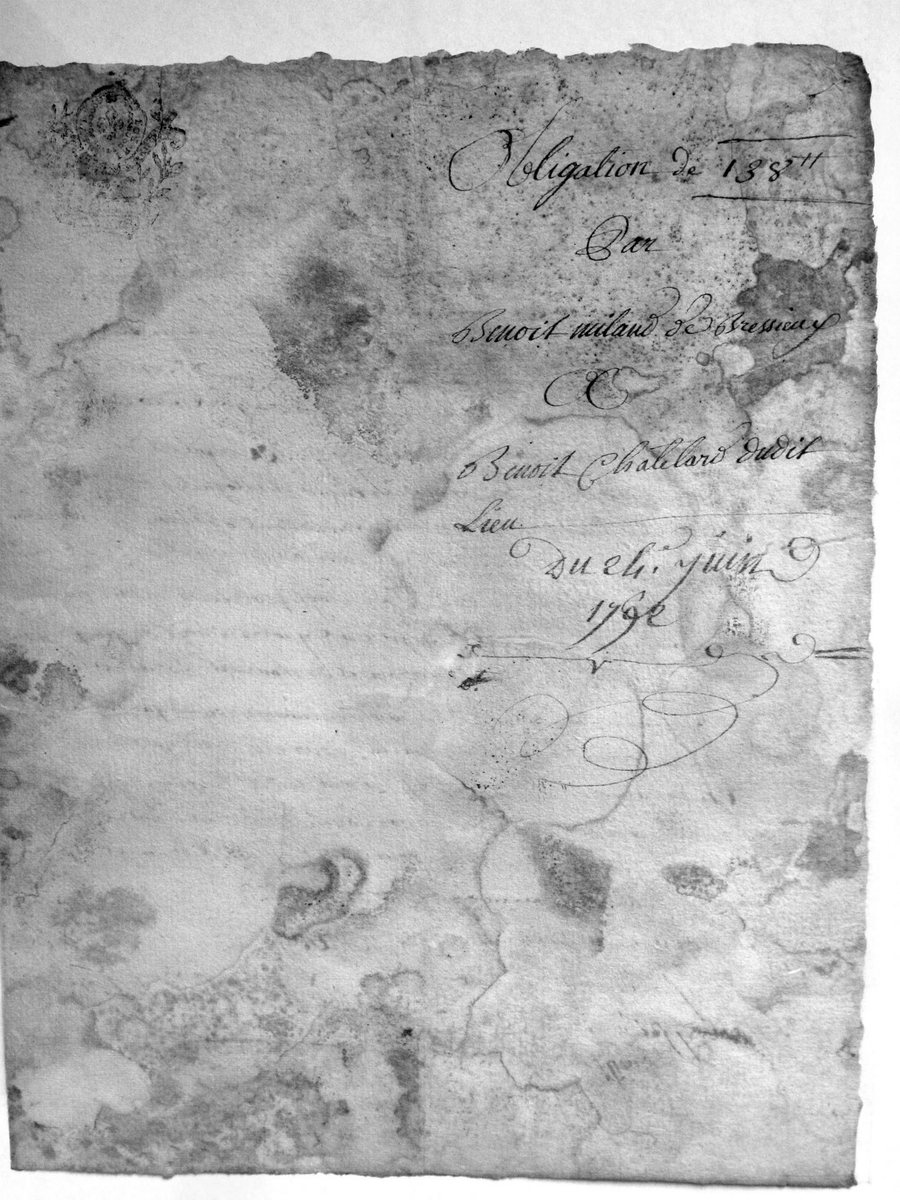 Obligation de 138 ₶
Par
Benoit miland de Bressieux
&
Benoit Chatelard dudit
Lieu
Du 24e. juin
1792